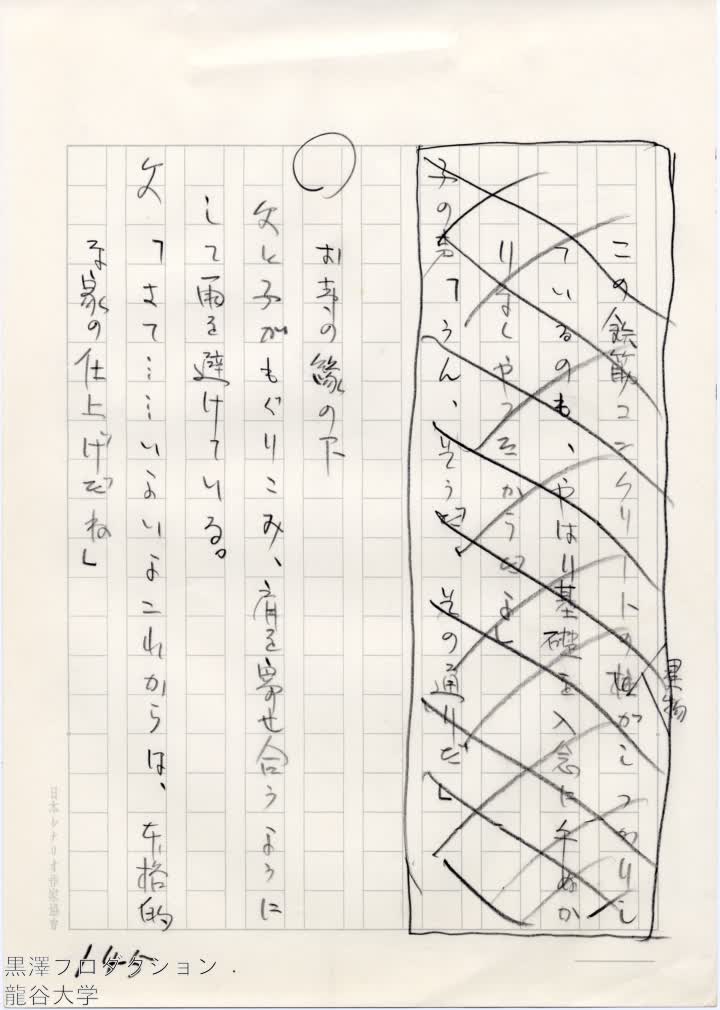 この鉄筋コンクリートの柱がしっかりし
建物
ているのも、やはり基礎を入念に手ぬか
りなくやったからだよ」
子の声「うん、そうだ、その通りだ」
○
お寺の縁の下
父と子がもぐりこみ、肩を寄せ合うように
して雨を避けている。
父「さて……いよいよこれからは、本格的
な家の仕上げだね」
日本シナリオ作家協会
145
黒澤プロダクション .
龍谷大学